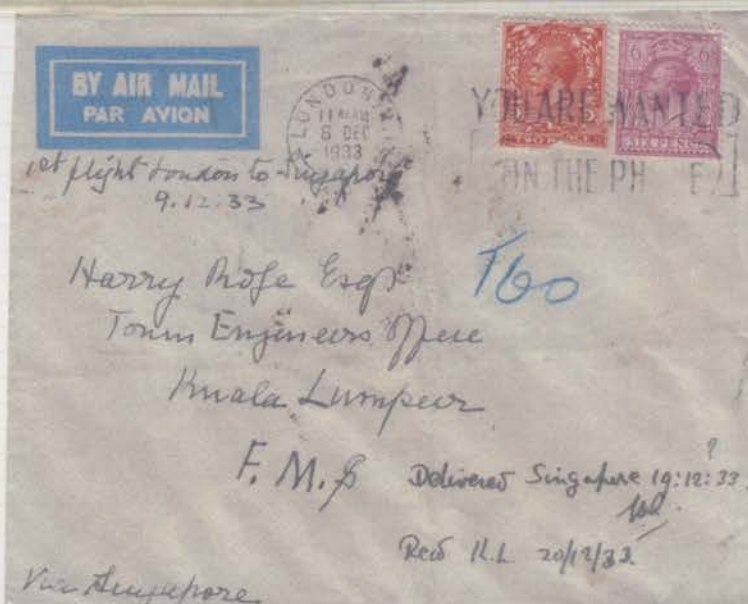 BY AIR MAIL
PAR AVION
LONDON
11
8 DEC
1933
YOU ARE WANTED
ON THE PH E
SIX PENCE
6 6
1st flight London to Singapore
9.12.33
T60
Harry Rofe Esqr
Town Engineers Office
Kuala Lumpur
F.M.S
Delivered Singapore 19:12:33
?
Recd K.L 20/12/33.
Via Singapore